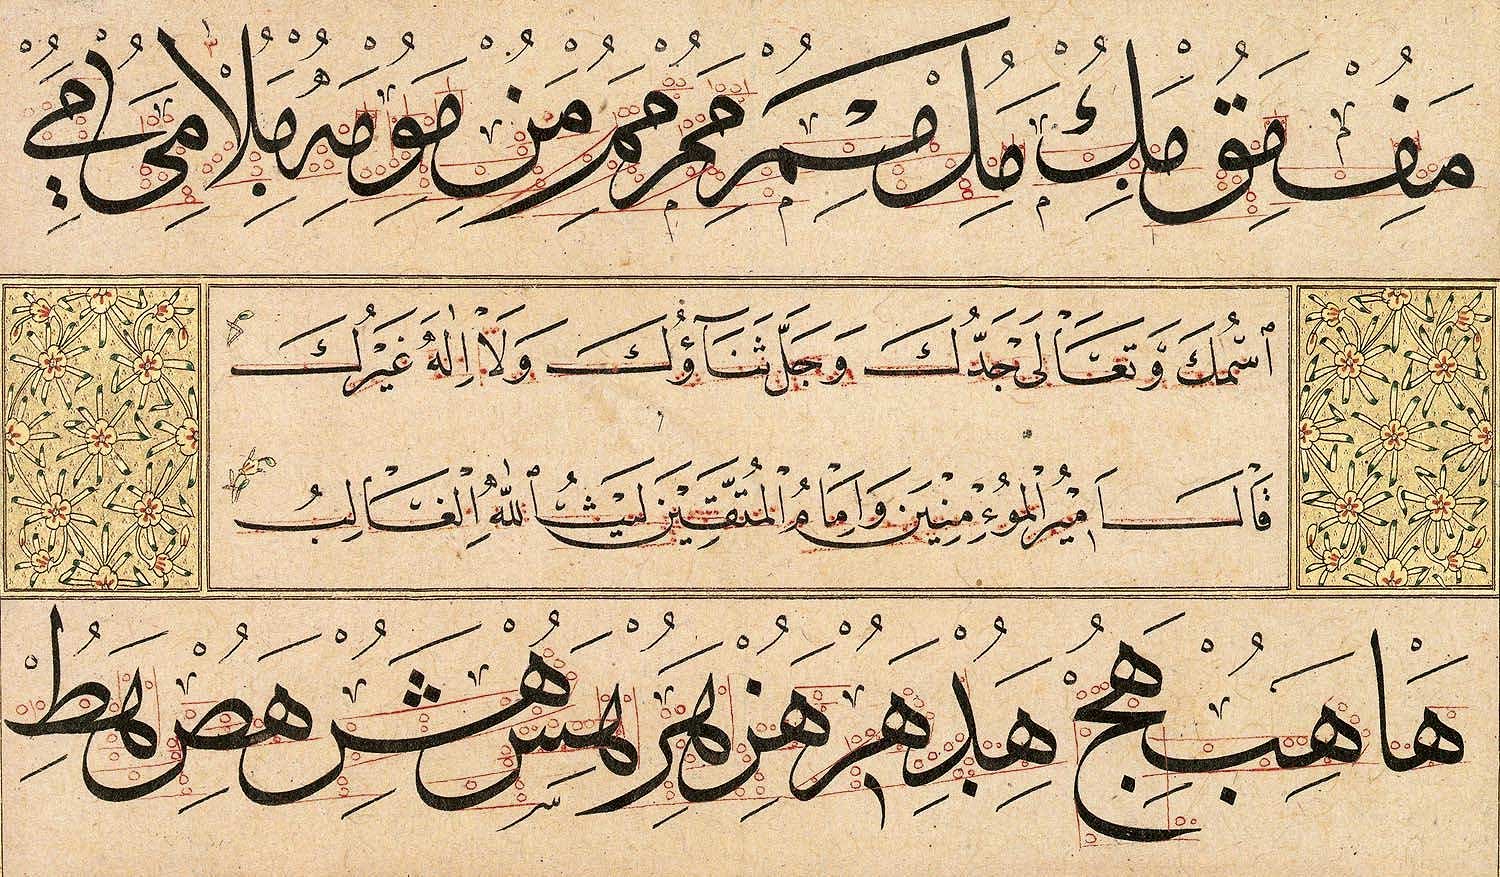 مَفْ مَقُ مِكُ مَل مَمِ مَنْ مَو مَه مَلَا مَى مَي
ٱسْمُكَ وَتَعَالَىٰ جَدُّكَ وَجَلَّ ثَنَآؤُكَ وَلَاۤ اِلٰهَ غَيْرُكَ
قَالَ اَمِيْرُ الْمُوءْمِنِيْنَ وَاِمَامُ الْمُتَّقِيْنَ لَيْثُ ٱللّٰهِ الْغَالِبُ
هَا هِبُ هَجُ هَدِ هَر هَزِ هَر هَسِ هَشِ هَصِ هَطُ